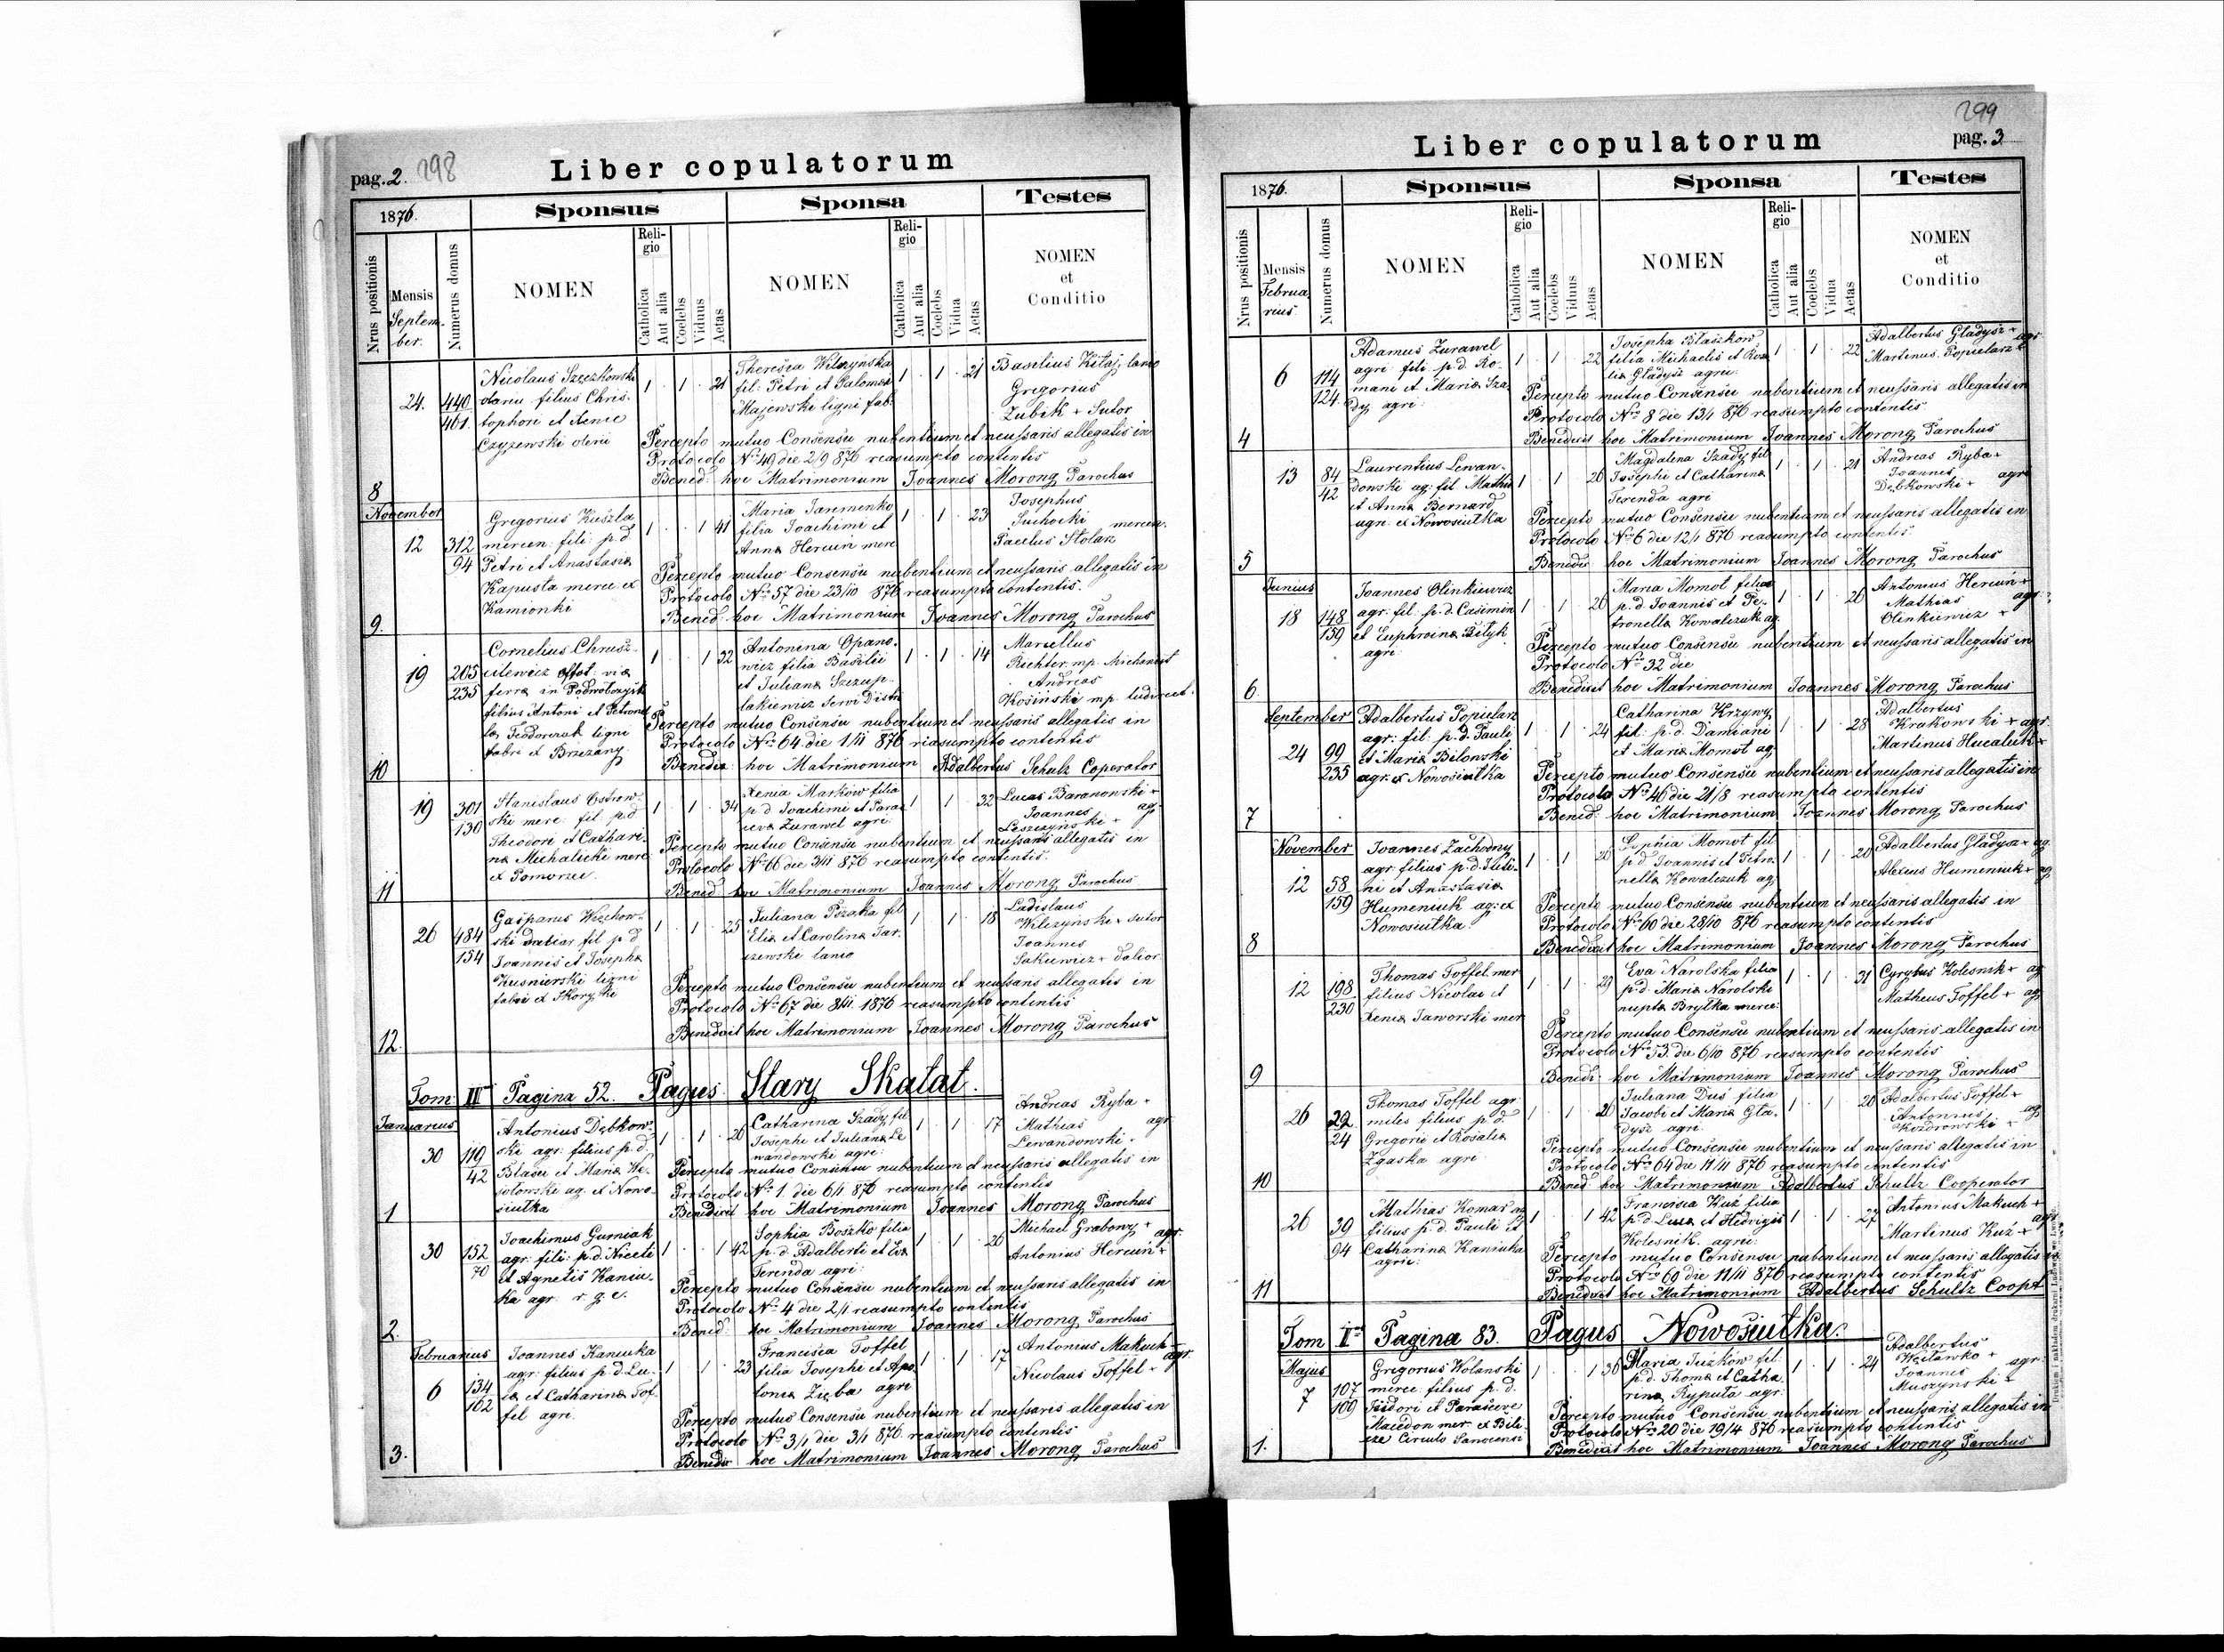 pag. 2. 298
Liber copulatorum
1876.
Sponsus
Sponsa
Testes
Nrus positionis
Mensis
Septem-
ber.
Numerus domus
NOMEN
Reli-
gio
Catholica
Aut alia
Coelebs
Viduus
Aetas
NOMEN
Reli-
gio
Catholica
Aut alia
Coelebs
Vidua
Aetas
NOMEN
et
Conditio
8
24. 440
461.
Nicolaus Szczkowski
filius Chris-
tophori et Xenie
Czyzewski
1 · 1 · 21
Theresia Wilczyńska
fil: Petri et Salomea
Majewski ligni fab:
1 · 1 · 21
Basilius Kitaj lanio
Gregorius
Zubik + Sutor
Percepto mutuo Consensu nubentium et neussaris allegatis in
Protocolo No 49 die 2/9 876 reasumpto contentis
Bened: hoc Matrimonium Joannes Morong Parochus
November
9.
12 312
94
Gregorius Kuszla
mercen: fili: p.d
Petri et Anastasia
Kapusta merce ex
Kamionki
1 · · 1 41
Maria Jaremenko
filia Joachimi et
Anna Hercuń merc
1 · 1 · 23
Josephus
Suchocki mercen.
Paulus Stolarz
Percepto mutuo Consensu nubentium et neussaris allegatis in
Protocolo No 57 die 23/10 876 reasumpto contentis.
Bened: hoc Matrimonium Joannes Morong Parochus
10
19 205
235
Cornelius Chrusz-
cilewicz offst: via
ferra in Podwoloczysk
filius Antoni et Petronel
la Teodorczuk ligni
fabri ex Brzezany
1 · · 1 32
Antonina Opano-
wicz filia Basilii
et Juliana Szczup-
lakiewicz Servi Distri
1 · 1 · 14
Marcellus
Richter mp. Michanist
Andreas
Kosinski mp. ludirect.
Percepto mutuo Consensu nubentium et neussaris allegatis in
Protocolo No 64 die 1/11 876 riasumpto contentis
Benedix: hoc Matrimonium Adalbertus Schulz Coperator
11
19 301
130
Stanislaus Ostrow-
ski merc: fil p d
Theodori et Cathari-
na Michalicki merc
ex Pomorzec.
1 · 1 · 34
Xenia Marków filia
p d Joachimi et Paras
ceva Zurawel agri:
1 · 1 · 32
Lucas Baranowski +
Joannes ag:
Leszczyński +
Percepto mutuo Consensu nubentium et neussaris allegatis in
Protocolo No 66 die 3/11 876 reasumpto contentis.
Bened hoc Matrimonium Joannes Morong Parochus
12.
26 484
154
Gasparus Wrchow-
ski fil p d
Joannis et Josepha
Kusnierski ligni
fabri ex Skorycki
1 · 1 · 25
Juliana Pszaka fil
Elia et Carolina Jar-
szewski lanio
1 · 1 · 18
Ladislaus
Wilczyński + Sutor
Joannes
Sakiewicz + dalior
Percepto mutuo Consensu nubentium et neussaris allegatis in
Protocolo No 67 die 8/11 1876 reasumpto contentis
Benedixit hoc Matrimonium Joannes Morong Parochus
Tom: III Pagina 52. Pagus Stary Skałat.
Januarius
1
30 119
42
Antonius Dębkow-
ski agr: filius p.d.
Blasii et Maria We-
sołowski ag. ex Nowo-
siułka
1 · 1 · 26
Catharina Szady fil
Josephi et Juliana Le
wandowski agri:
1 · 1 · 17
Andreas Ryba +
Mathias agr
Lewandowski +
Percepto mutuo Consensu nubentium et neussaris allegatis in
Protocolo No 1. die 6/1 876 reasumpto contentis
Benedixit hoc Matrimonium Joannes Morong Parochus
2
30 152
70
Joachimus Gurniak
agr: fili: p.d. Niceti
et Agnetis Kaniu-
ka agr: r. g. c.
1 · · 1 42
Sophia Boszko filia
p. d. Adalberti et Eva
Ferenda agri:
1 · 1 · 26
Michael Grabowy + agr.
Antonius Hercuń +
Percepto mutuo Consensu nubentium et neussaris allegatis in
Protocolo No 4 die 2/1 reasumpto contentis
Bened: hoc Matrimonium Joannes Morong Parochus
Februarius
3.
6 134
162
Joannes Kaniuka
agr: filius p.d. Lu-
ca et Catharina Tof-
fel agri.
1 · 1 · 23
Francisca Toffel
filia Josephi et Apo-
lonia Zięba agri
1 · 1 · 17
Antonius Makuch +
agr
Nicolaus Toffel +
Percepto mutuo Consensu nubentium et neussaris allegatis in
Protocolo No 3/1 die 3/1 876 reasumpto contentis
Benedix hoc Matrimonium Joannes Morong Parochus
299
Liber copulatorum
pag. 3
1876.
Sponsus
Sponsa
Testes
Nrus positionis
Mensis
Februa
rius
Numerus domus
NOMEN
Reli-
gio
Catholica
Aut alia
Coelebs
Viduus
Aetas
NOMEN
Reli-
gio
Catholica
Aut alia
Coelebs
Vidua
Aetas
NOMEN
et
Conditio
4
6 114
124.
Adamus Zurawel
agri: fili: p.d. Ro-
mani et Maria Sza-
dy agri:
1 · 1 · 22
Josepha Błaszków
filia Michaelis et Rosa
lia Gladysz agri:
1 · 1 · 22
Adalbertus Gladysz + agr
Martinus Popielarz +
Percepto mutuo Consensu nubentium et neussaris allegatis in
Protocolo No 8 die 13/1 876 reasumpto contentis
Benedixit hoc Matrimonium Joannes Morong Parochus
5
13 84
42
Laurentius Lewan-
dowski ag: fil Mathia
et Anna Bernard
agri: ex Nowosiułka
1 · 1 · 26
Magdalena Szady fil
Josephi et Catharina
Ferenda agri
1 · 1 · 21
Andreas Ryba +
Joannes agr
Dębkowski +
Percepto mutuo Consensu nubentium et neussaris allegatis in
Protocolo No 6 die 12/1 876 reasumpto contentis.
Benedix hoc Matrimonium Joannes Morong Parochus
Junius
6
18 148
159
Joannes Olinkiewicz
agr: fil: p.d. Casimiri
et Euphrosina Bityk
agri:
1 · 1 · 26
Maria Momot filia
p.d. Joannis et Pe-
tronella Kowalczuk ag.
1 · 1 · 26
Antonius Hercuń +
Mathias agr:
Olinkiewicz +
Percepto mutuo Consensu nubentium et neussaris allegatis in
Protocolo No 32 die
Benedixit hoc Matrimonium Joannes Morong Parochus
September
7
24 99
235
Adalbertus Popielarz
agr: fil: p.d. Pauli
et Maria Bilonski
agr: ex Nowosiułka
1 · 1 · 24
Catharina Krzywy
fil: p.d. Damiani
et Maria Momot ag
1 · 1 · 28
Adalbertus
Krakowski + agr:
Martinus Hucaluk +
Percepto mutuo Consensu nubentium et neussaris allegatis in
Protocolo No 46 die 21/8 reasumpto contentis
Bened: hoc Matrimonium Joannes Morong Parochus
November
8
12 58
159
Joannes Zachodny
agr filius p.d. Justi-
ni et Anastasia
Humeniuk ag: ex
Nowosiułka:
1 · 1 · 20
Sophia Momot fil
p.d. Joannis et Petro
nella Kowalczuk ag
1 · 1 · 20
Adalbertus Gladysz + ag.
Alexius Humeniuk + ag
Percepto mutuo Consensu nubentium et neussaris allegatis in
Protocolo No 60 die 28/10 876 reasumpto contentis
Benedixit hoc Matrimonium Joannes Morong Parochus
9
12 198
230
Thomas Toffel mer
filius Nicolai et
Xenia Jaworski mer
1 · 1 · 29
Eva Narolska filia
p.d. Maria Narolski
nupta Brytka merce:
1 · 1 · 31
Cyrylus Kolesnik + ag
Matheus Toffel + ag
Percepto mutuo Consensu nubentium et neussaris allegatis in
Protocolo No 53. die 6/10 876 reasumpto contentis
Benedi: hoc Matrimonium Joannes Morong Parochus
10
26 22
24
Thomas Toffel agr
miles filius p.d.
Gregorii et Rosalia
Zgaska agri
1 · 1 · 20
Juliana Duś filia
Jacobi et Maria Gła-
dysz agri:
1 · 1 · 20
Adalbertus Toffel +
Antonius ag
Kozdrowski +
Percepto mutuo Consensu nubentium et neussaris allegatis in
Protocolo No 64 die 11/11 876 reasumpto contentis
Bened hoc Matrimonium Adalbertus Schultz Cooperator
11
26 39
94
Mathias Komar ag
filius p.d. Pauli et
Catharina Kaniuka
agric:
1 · · 1 42
Francisca Kuź filia
p.d Luca et Hedvigis
Kolesnik. agric:
1 · 1 · 27
Antonius Makuch +
agr
Martinus Kuź +
Percepto mutuo Consensu nubentium et neussaris allegatis in
Protocolo No 69 die 11/11 876 reasumpto contentis
Benedixit hoc Matrimonium Adalbertus Schultz Coopt
Tom II Pagina 83. Pagus Nowosiułka.
Majus
1.
7 107
109
Gregorius Wolanski
merce: filius p.d.
Isidori et Parasceve
Macedon mer: ex Bili-
cze Circulo Sanocensi
1 · · 1 36
Maria Juzków fil:
p.d. Thoma et Catha
rina Ryputa agr:
1 · 1 · 24
Adalbertus
Wieławko +
Joannes agr:
Muszynski +
Percepto mutuo Consensu nubentium et neussaris allegatis in
Protocolo No 20 die 19/4 876 reasumpto contentis
Benedixit hoc Matrimonium Joannes Morong Parochus